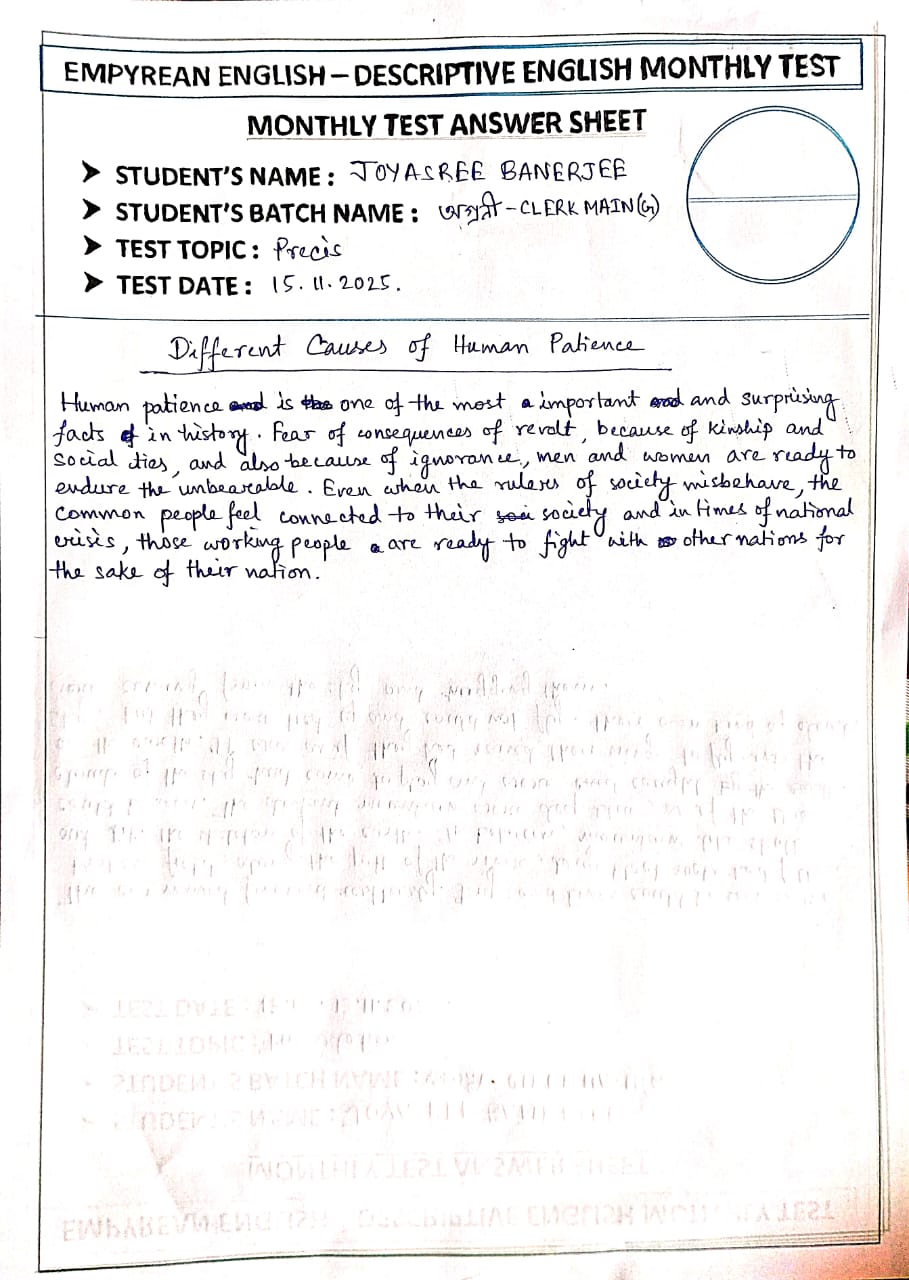 EMPYREAN ENGLISH – DESCRIPTIVE ENGLISH MONTHLY TEST
MONTHLY TEST ANSWER SHEET
➤ STUDENT'S NAME : JOYASREE BANERJEE
➤ STUDENT'S BATCH NAME : - CLERK MAIN (G)
➤ TEST TOPIC : Precis
➤ TEST DATE : 15.11.2025.
Different Causes of Human Patience
Human patience is one of the most important and surprising
facts in history. Fear of consequences of revolt, because of kinship and
social ties, and also because of ignorance, men and women are ready to
endure the unbearable. Even when the rulers of society misbehave, the
common people feel connected to their society and in times of national
crisis, those working people are ready to fight with other nations for
the sake of their nation.